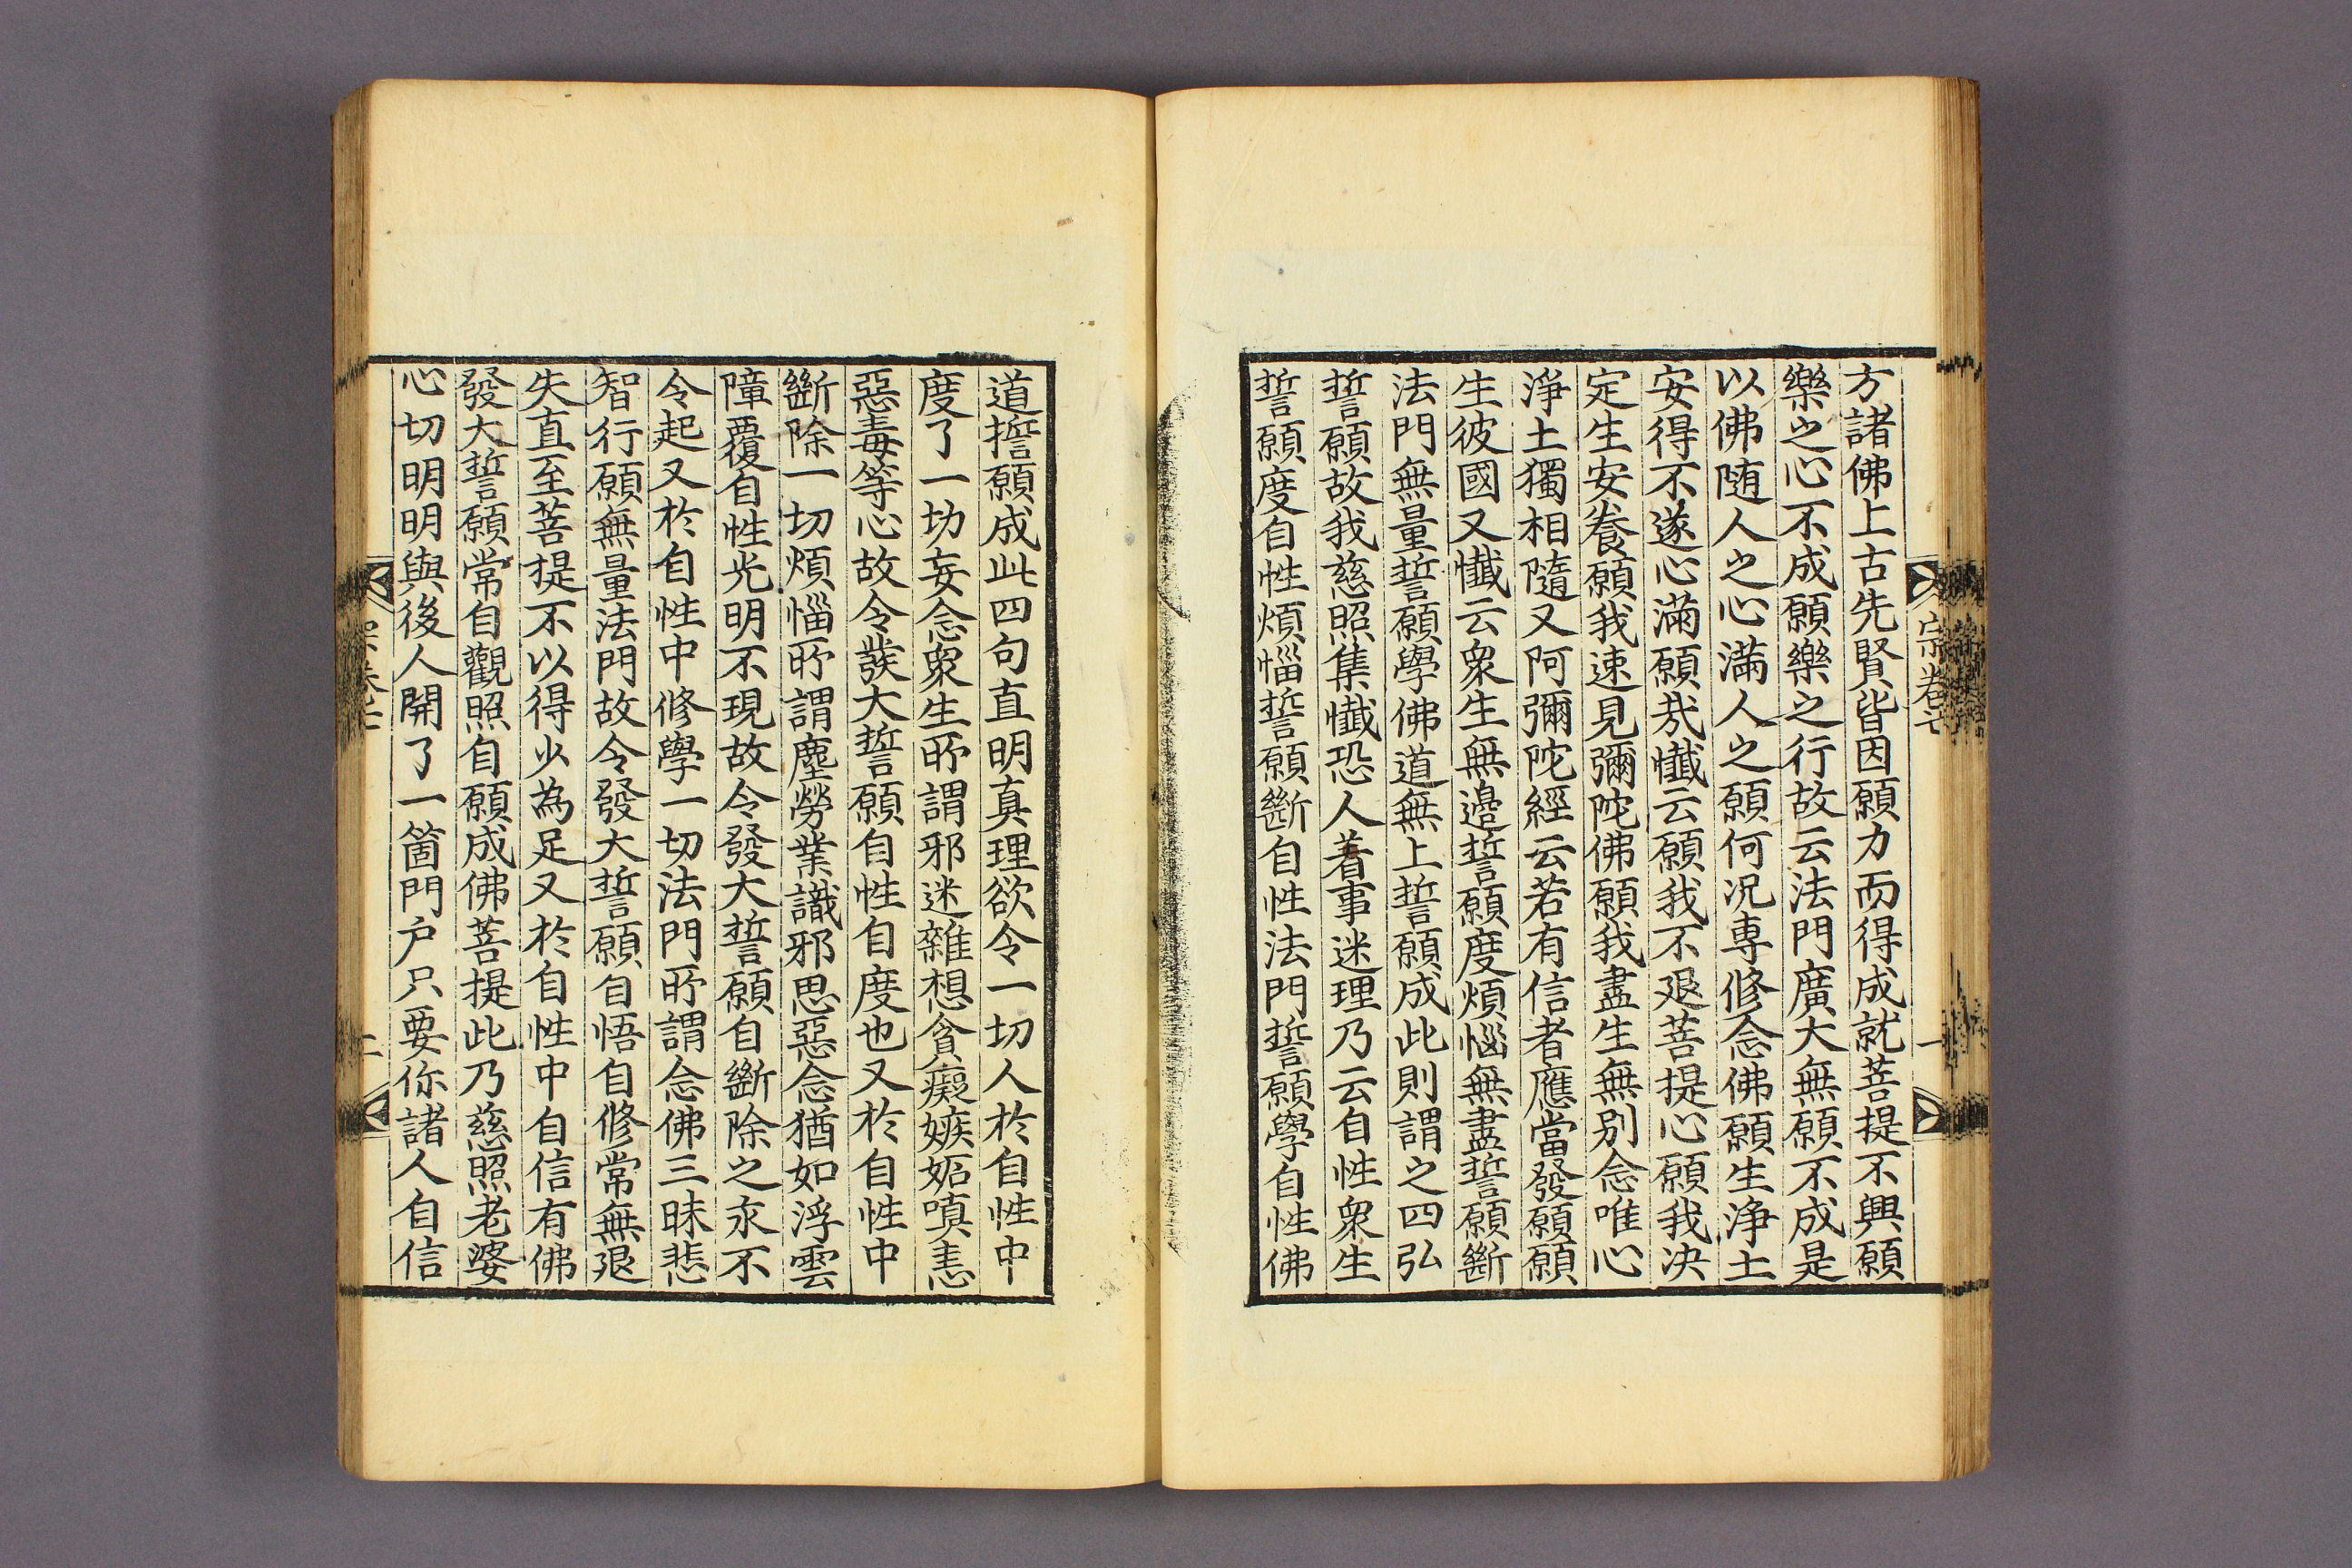 方諸佛上古先賢皆因願力而得成就菩提不興願
樂之心不成願樂之行故云法門廣大無願不成是
以佛随人之心滿人之願何况專修念佛願生淨土
安得不遂心滿願㦲懺云願我不退菩提心願我决
定生安養願我速見彌陀佛願我盡生無別念唯心
淨土獨相隨又阿彌陀經云若有信者應當發願願
生彼國又懺云衆生無邉誓願度煩惱無盡誓願斷
法門無量誓願學佛道無上誓願成此則謂之四弘
誓願故我慈照集懺恐人着事迷理乃云自性衆生
誓願度自性煩惱誓願斷自性法門誓願學自性佛
宗卷七
一
道誓願成此四句直明真理欲令一切人於自性中
度了一切妄念衆生所謂邪迷雜想貪癡嫉妬嗔恚
惡毒等心故令發大誓願自性自度也又於自性中
斷除一切煩惱所謂塵勞業識邪思惡念猶如浮雲
障覆自性光明不現故令發大誓願自斷除之永不
令起又於自性中修學一切法門所謂念佛三昧悲
智行願無量法門故令發大誓願自悟自修常無退
失直至菩提不以得少為足又於自性中自信有佛
發大誓願常自觀照自願成佛菩提此乃慈照老婆
心切明明與後人開了一箇門户只要你諸人自信
二